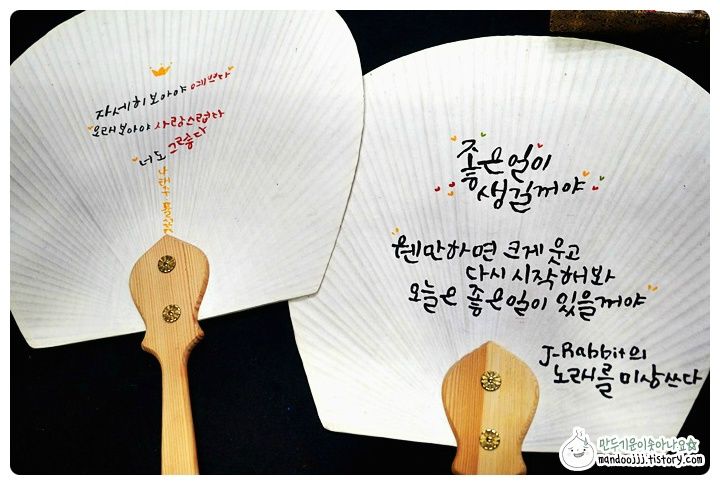 자세히보아야 예쁘다
오래보아야 사랑스럽다
너도 그렇다
좋은일이
생길꺼야
웬만하면 크게 웃고
다시 시작해봐
오늘은 좋은일이 있을꺼야
J-Rabbit의
노래를 미상쓰다
만두기운이솟아나요
mandoojjj.tistory.com